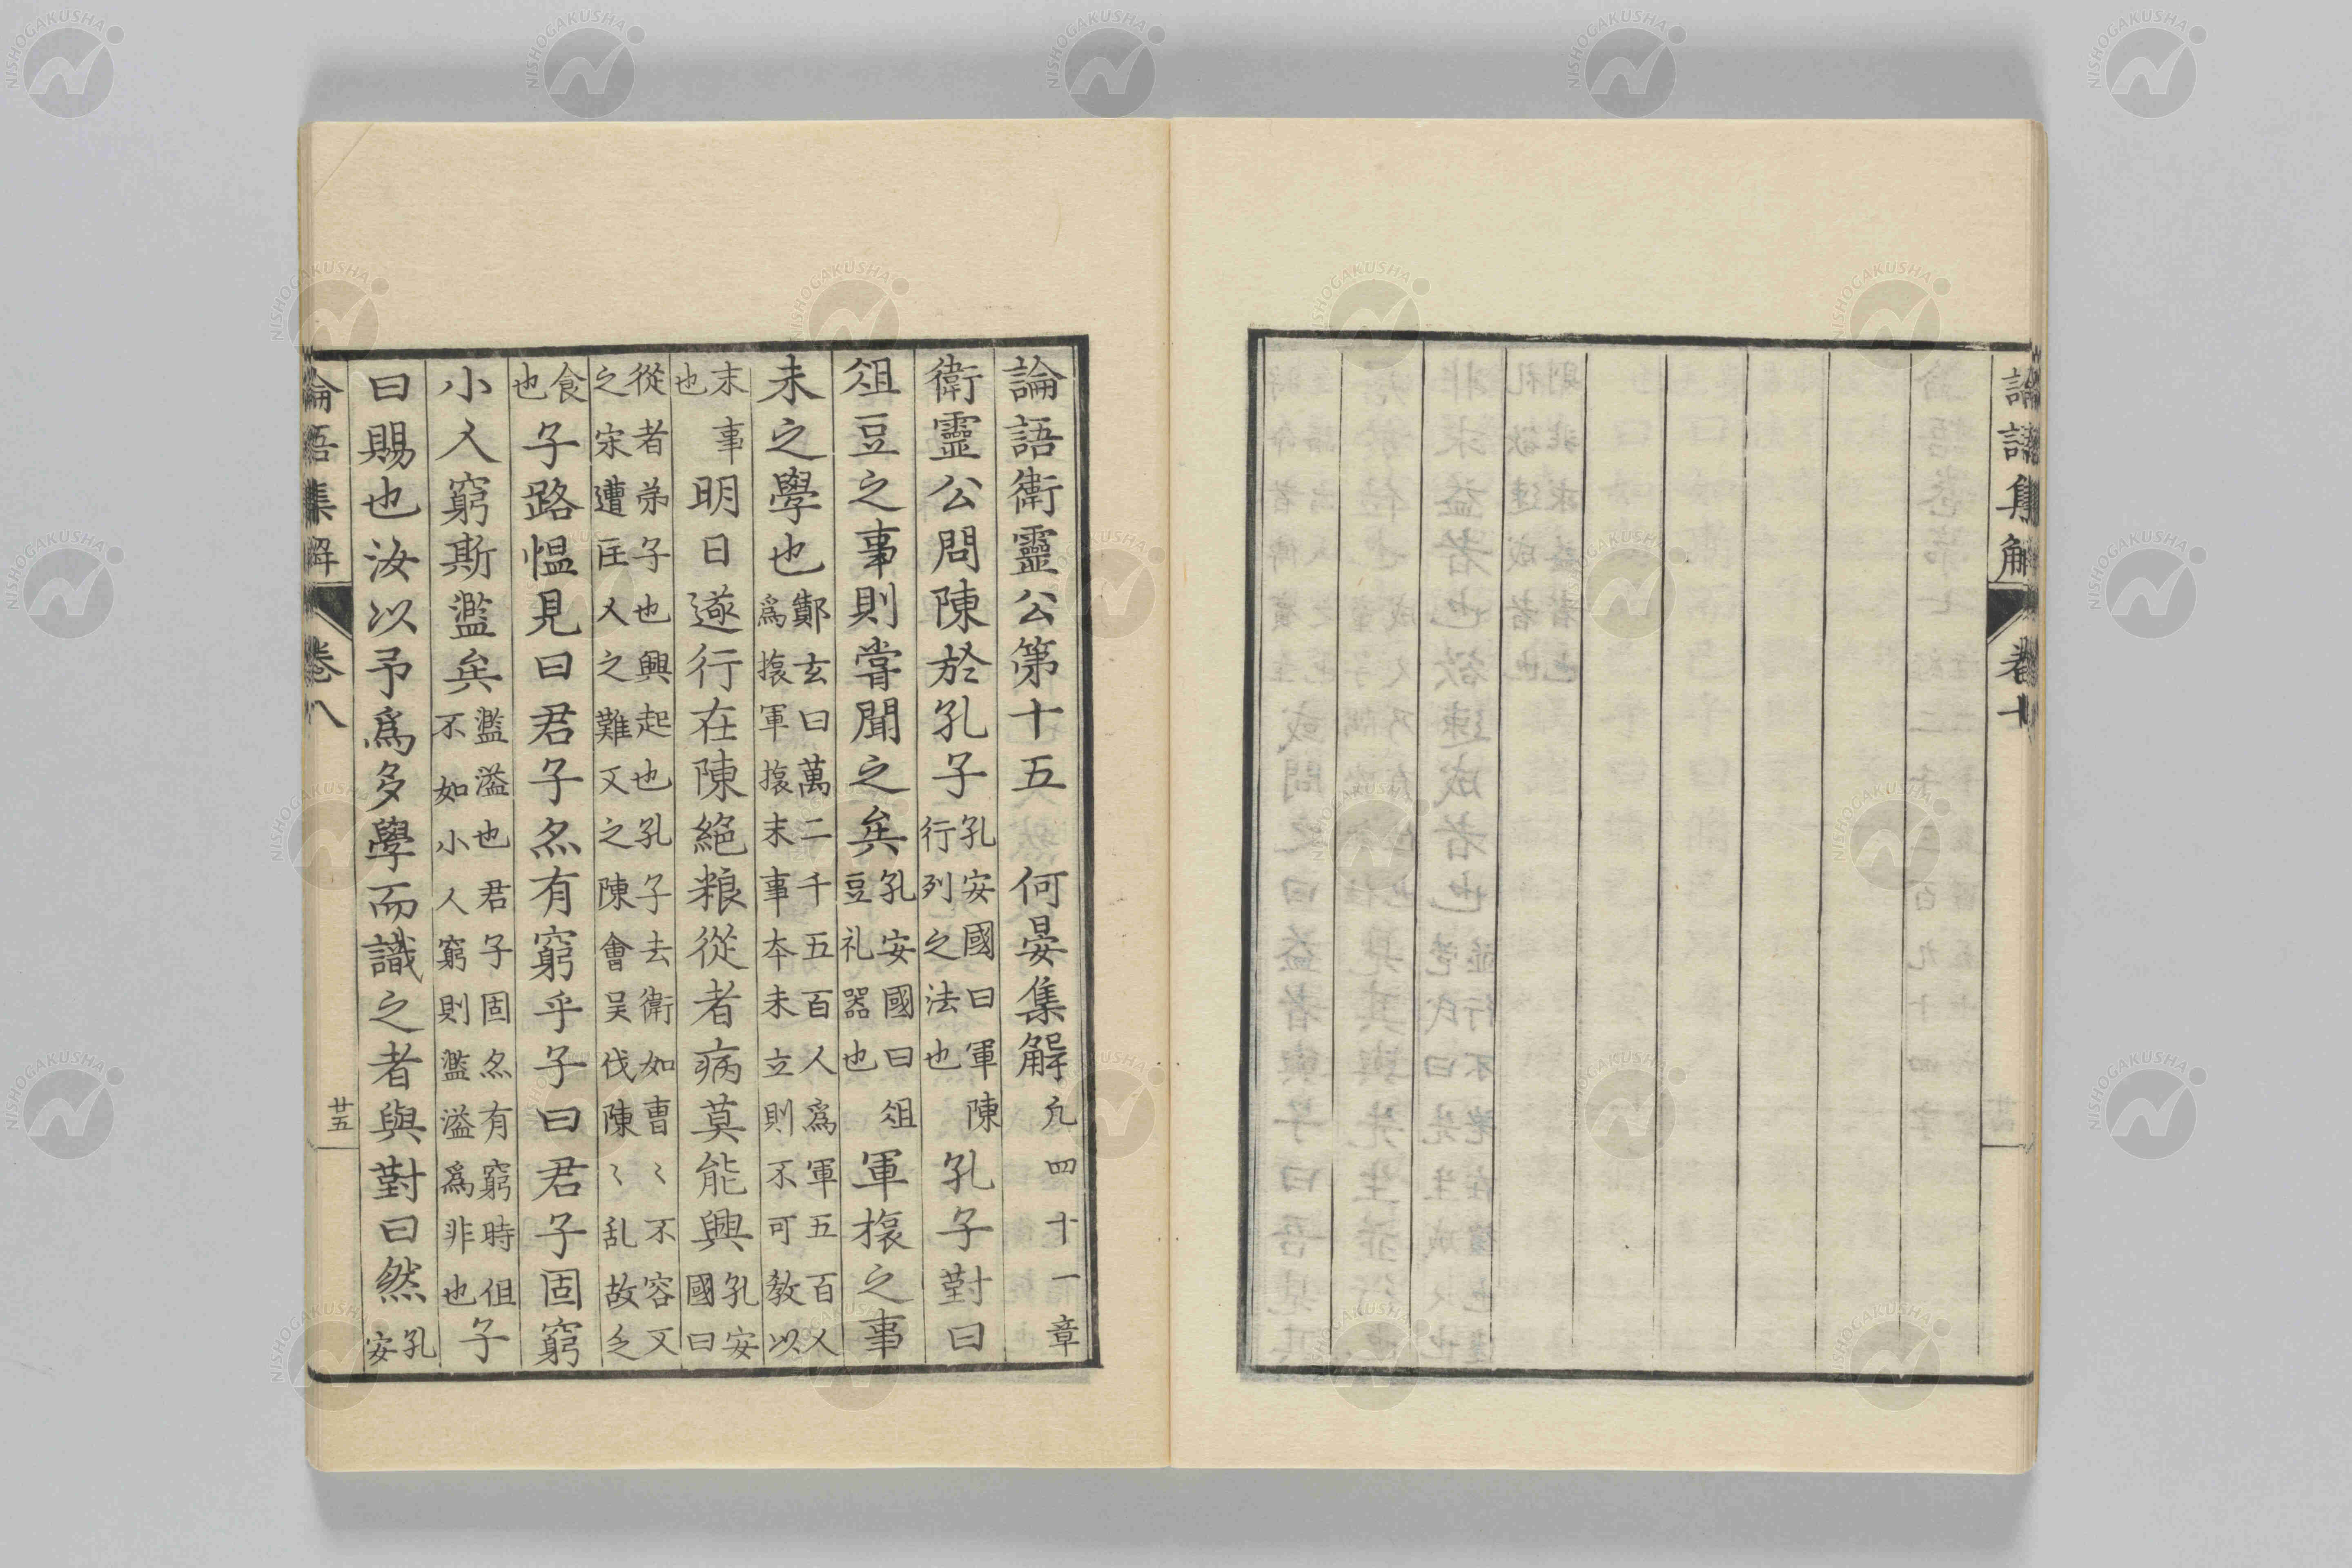 論語衛靈公第十五　何晏集解凢四十一章
衛靈公問陳於孔子孔安國曰軍陳行列之法也孔子對曰
俎豆之事則甞聞之矣孔安國曰俎豆礼器也軍旅之事
未之學也鄭玄曰萬二千五百人爲軍五百人爲旅軍旅末事本未立則不可教以
末事也明日遂行在陳絕粮從者病莫能興孔安國曰
從者弟子也興起也孔子去衛如曹〻不容又之宋遭匡人之難又之陳會吴伐陳〻乱故乏
食也子路愠見曰君子亦有窮乎子曰君子固窮
小人窮斯濫矣濫溢也君子固亦有窮時但不如小人窮則濫溢爲非也子
曰賜也汝以予爲多學而識之者與對曰然孔安
論語集解
卷八
廿五
論語集解
NISHOGAKUSHA